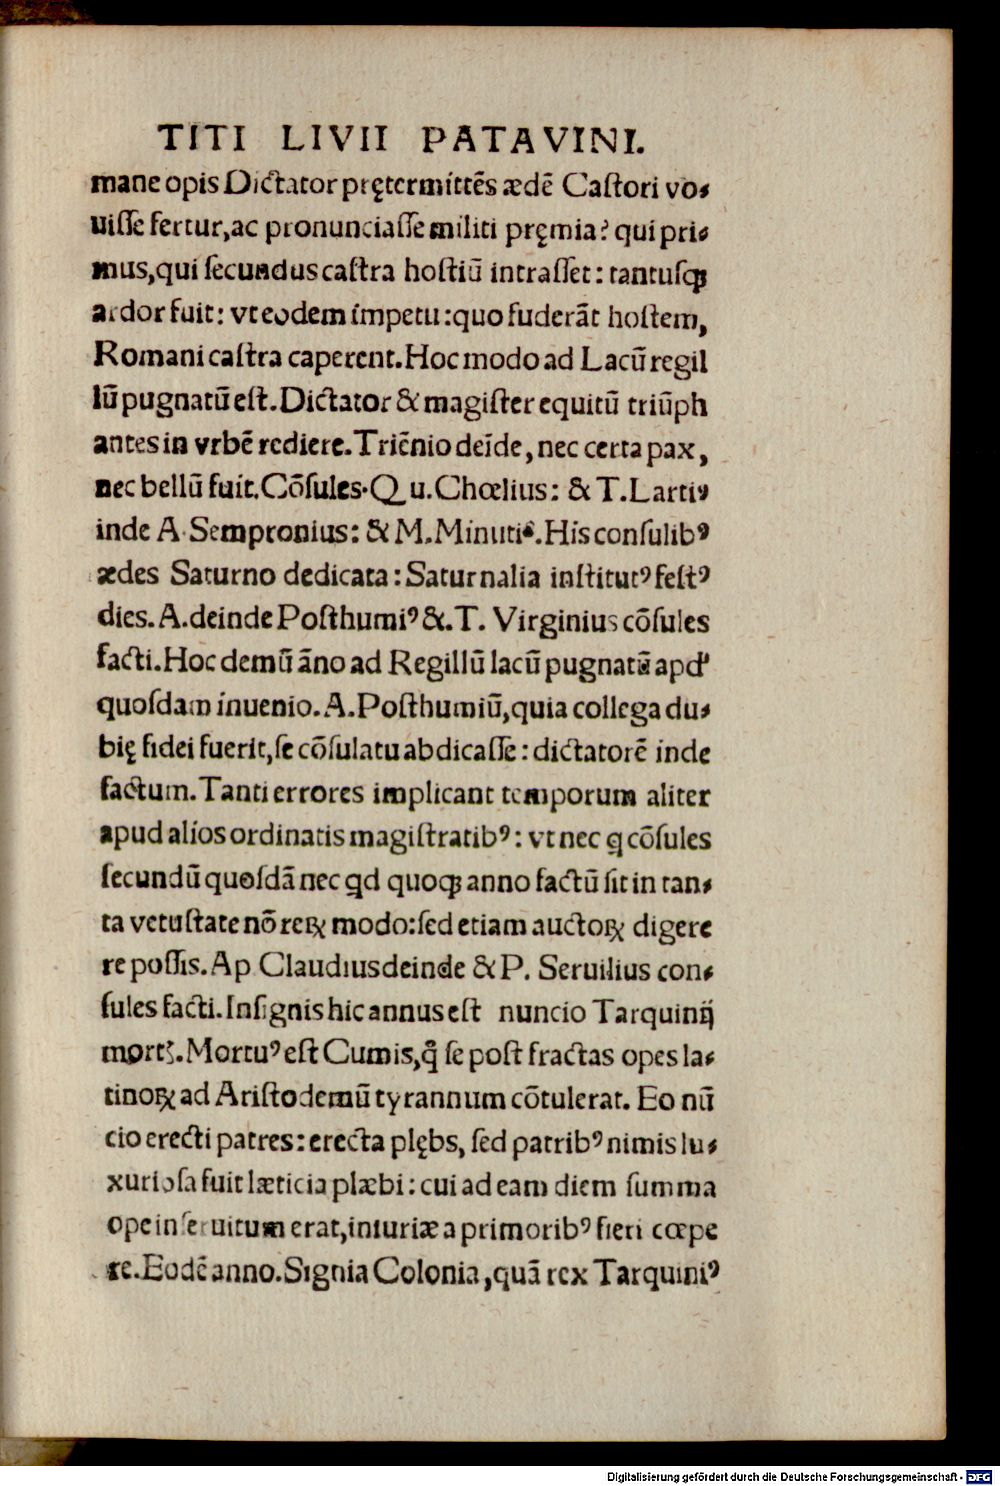 TITI LIVII PATAVINI.
mane opis Dictator prętermittēs ædē Castori vo⸗
uisse fertur, ac pronunciasse militi pręmia? qui pri⸗
mus, qui secundus castra hostiū intrasset: tantusqꝫ
ardor fuit: vt eodem impetu: quo fuderāt hostem,
Romani castra caperent. Hoc modo ad Lacū regil
lū pugnatū est. Dictator & magister equitū triūph
antes in vrbē rediere. Triēnio deīde, nec certa pax,
nec bellū fuit. Cōsules. Q u. Chœlius: & T. Lartiꝰ
inde A. Sempronius: & M. Minutiꝰ. His consulibꝰ
ædes Saturno dedicata: Saturnalia institutꝰ festꝰ
dies. A. deinde Posthumiꝰ &. T. Virginius cōsules
facti. Hoc demū āno ad Regillū lacū pugnatū apd'
quosdam inuenio. A. Posthumiū, quia collega du⸗
bię fidei fuerit, se cōsulatu abdicasse: dictatorē inde
factum. Tanti errores implicant temporum aliter
apud alios ordinatis magistratibꝰ: vt nec ꝗ cōsules
secundū quosdā nec ꝗd quoqꝫ anno factū sit in tan⸗
ta vetustate nō reꝝ modo: sed etiam auctoꝝ digere
re possis. Ap Claudius deinde & P. Seruilius con⸗
sules facti. Insignis hic annus est nuncio Tarquinij
mortꝭ. Mortuꝰ est Cumis, q̄ se post fractas opes la⸗
tinoꝝ ad Aristodemū tyrannum cōtulerat. Eo nū
cio erecti patres: erecta plębs, sed patribꝰ nimis lu⸗
xuriosa fuit læticia plæbi: cui ad eam diem summa
ope inseruitum erat, iniuriæ a primoribꝰ fieri cœpe
re. Eodē anno. Signia Colonia, quā rex Tarquiniꝰ
Digitalisierung gefördert durch die Deutsche Forschungsgemeinschaft - DFG